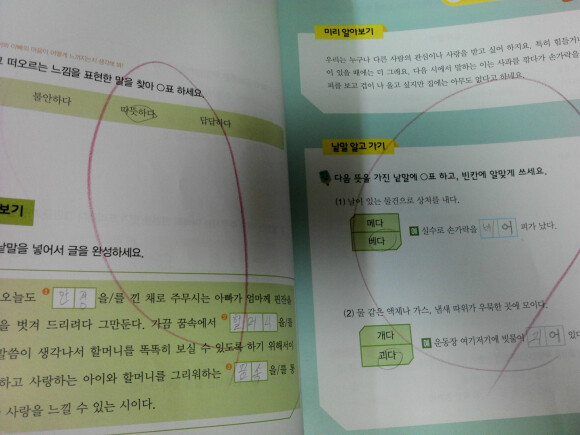 떠오르는 느낌을 표현한 말을 찾아 ○표 하세요.
불안하다 따뜻하다 답답하다
보기
낱말을 넣어서 글을 완성하세요.
오늘도 안경 을/를 낀 채로 주무시는 아빠가 엄마께 핀잔을
을 벗겨 드리려다 그만둔다. 가끔 꿈속에서 을/를
말씀이 생각나서 할머니를 똑똑히 보실 수 있도록 하기 위해서이
하고 사랑하는 아이와 할머니를 그리워하는 을/를 통
사랑을 느낄 수 있는 시이다.
미리 알아보기
우리는 누구나 다른 사람의 관심이나 사랑을 받고 싶어 하지요. 특히 힘들거나
이 있을 때에는 더 그래요. 다음 시에서 말하는 이는 사과를 깎다가 손가락을
피를 보고 겁이 나 울고 싶지만 집에는 아무도 없다고 하네요.
낱말 알고 가기
다음 뜻을 가진 낱말에 ○표 하고, 빈칸에 알맞게 쓰세요.
(1) 날이 있는 물건으로 상처를 내다.
메다
베다
실수로 손가락을 베어 피가 났다.
(2) 물 같은 액체나 가스, 냄새 따위가 우묵한 곳에 모이다.
개다
괴다
운동장 여기저기에 빗물이 괴어 있다